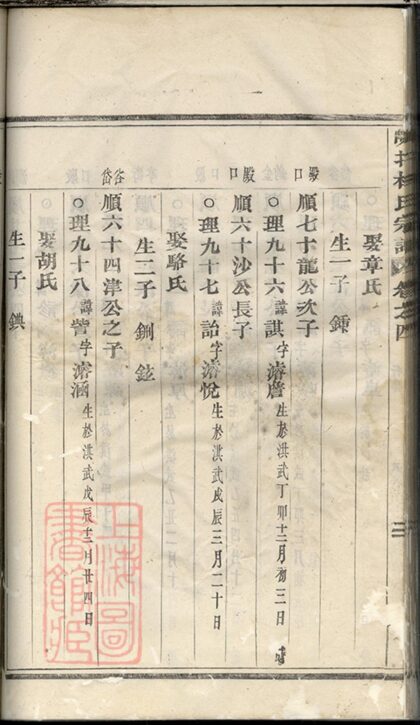 娶章氏
生一子鍾
殿口
順七十龍公次子
○理九十六諱諆字濬詹生於洪武丁卯十二月初三日
殿口
順六十沙公長子
○理九十七諱詒字濬悅生於洪武戊辰三月二十日
娶駱氏
生二子鉶鉉
岱
順六十四津公之子
○理九十八諱訾字濬涵生於洪武戊辰十二月廿四日
娶胡氏
生一子錪
氏宗譜 卷之四
上海圖書館藏